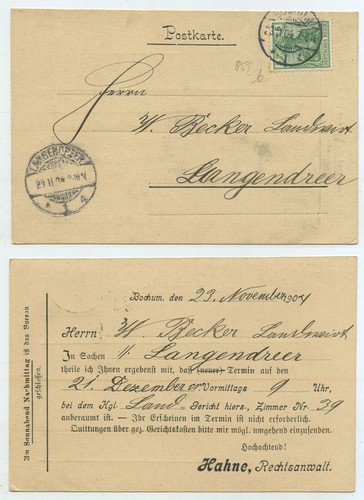 Postkarte.
857
b
Herrn
W. Becker Landwirt
Langendreer
LANGENDREER
Bochum, den 23. November 1904
Herrn W. Becker Landwirt
In Sachen //. Langendreer
theile ich Ihnen ergebenst mit, daß (neuer) Termin auf den
21. Dezember er Vormittags 9 Uhr,
bei dem Kgl. Land-Gericht hiers., Zimmer Nr. 39
anberaumt ist. — Ihr Erscheinen im Termin ist nicht erforderlich.
Quittungen über gez. Gerichtskosten bitte mir mögl. umgehend einzusenden.
Hochachtend!
Hahne, Rechtsanwalt.
Am Sonnabend Nachmittag ist das Bureau
geschlossen.